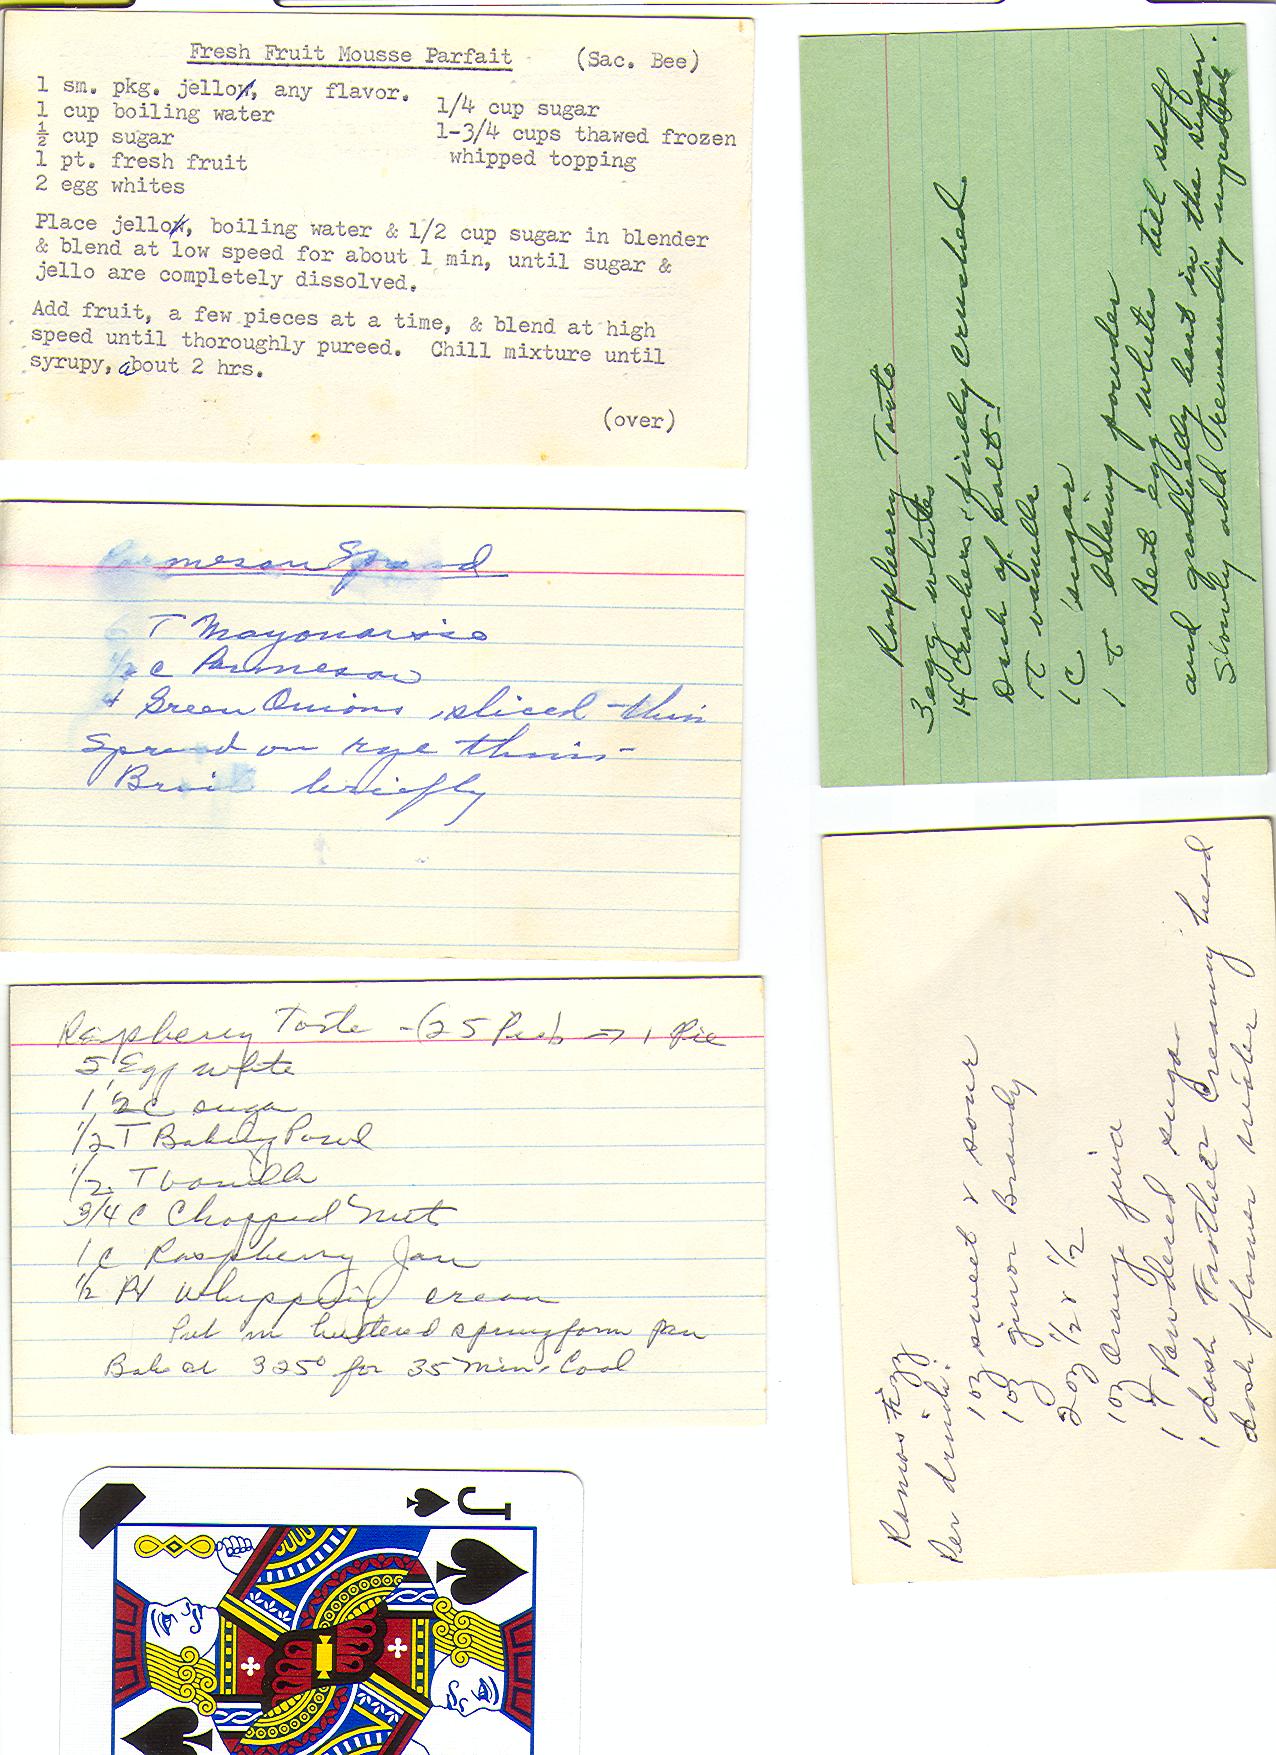 Fresh Fruit Mousse Parfait (Sac. Bee)
1 sm. pkg. jello, any flavor.
1 cup boiling water
½ cup sugar
1 pt. fresh fruit
2 egg whites
1/4 cup sugar
1-3/4 cups thawed frozen
whipped topping
Place jello, boiling water & 1/2 cup sugar in blender
& blend at low speed for about 1 min, until sugar &
jello are completely dissolved.
Add fruit, a few pieces at a time, & blend at high
speed until thoroughly pureed. Chill mixture until
syrupy, about 2 hrs.
(over)
Parmesan Spread
T Mayonaisio
1/2 c Parmesan
+ Green Onions sliced thin
Spread on rye thins-
Broil briefly
Raspberry Torte - (25 Peo) → 1 Pie
5 Egg white
1 1/2 c sugar
1/2 T Baking Powd
1/2 T vanilla
3/4 C Chopped Nuts
1 c Raspberry Jam
1/2 Pt Whipping cream
Put in buttered springform pan
Bake at 325° for 35 min. Cool
J
Raspberry Torte
3 egg whites
14 Crackers finely crushed.
Dash of salt!
T vanilla
1 C sugar
1 t baking powder
Beat egg whites till stiff
and gradually beat in the sugar.
Slowly add remainding ingredients
Ramos Fizz
Per drink:
1 oz sweet & sour
1 oz Brandy
2 oz 1/2 & 1/2
1 oz orange juice
1 T Powdered sugar
1 dash Frothee creamy head
dash flower water